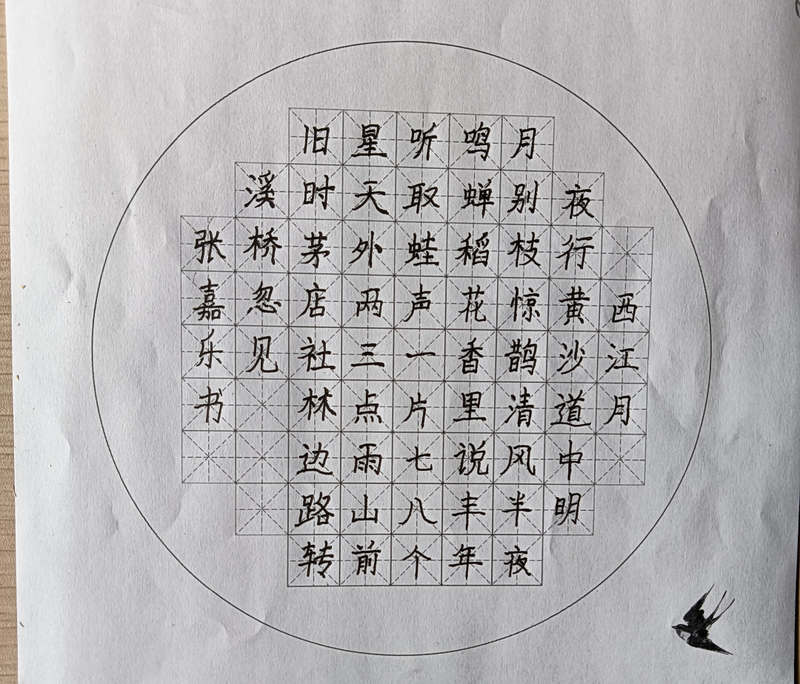 西江月
夜行黄沙道中明
月别枝惊鹊清风半夜
鸣蝉稻花香里说丰年
听取蛙声一片七八个
星天外两三点雨山前
旧时茅店社林边路转
溪桥忽见
张嘉乐书